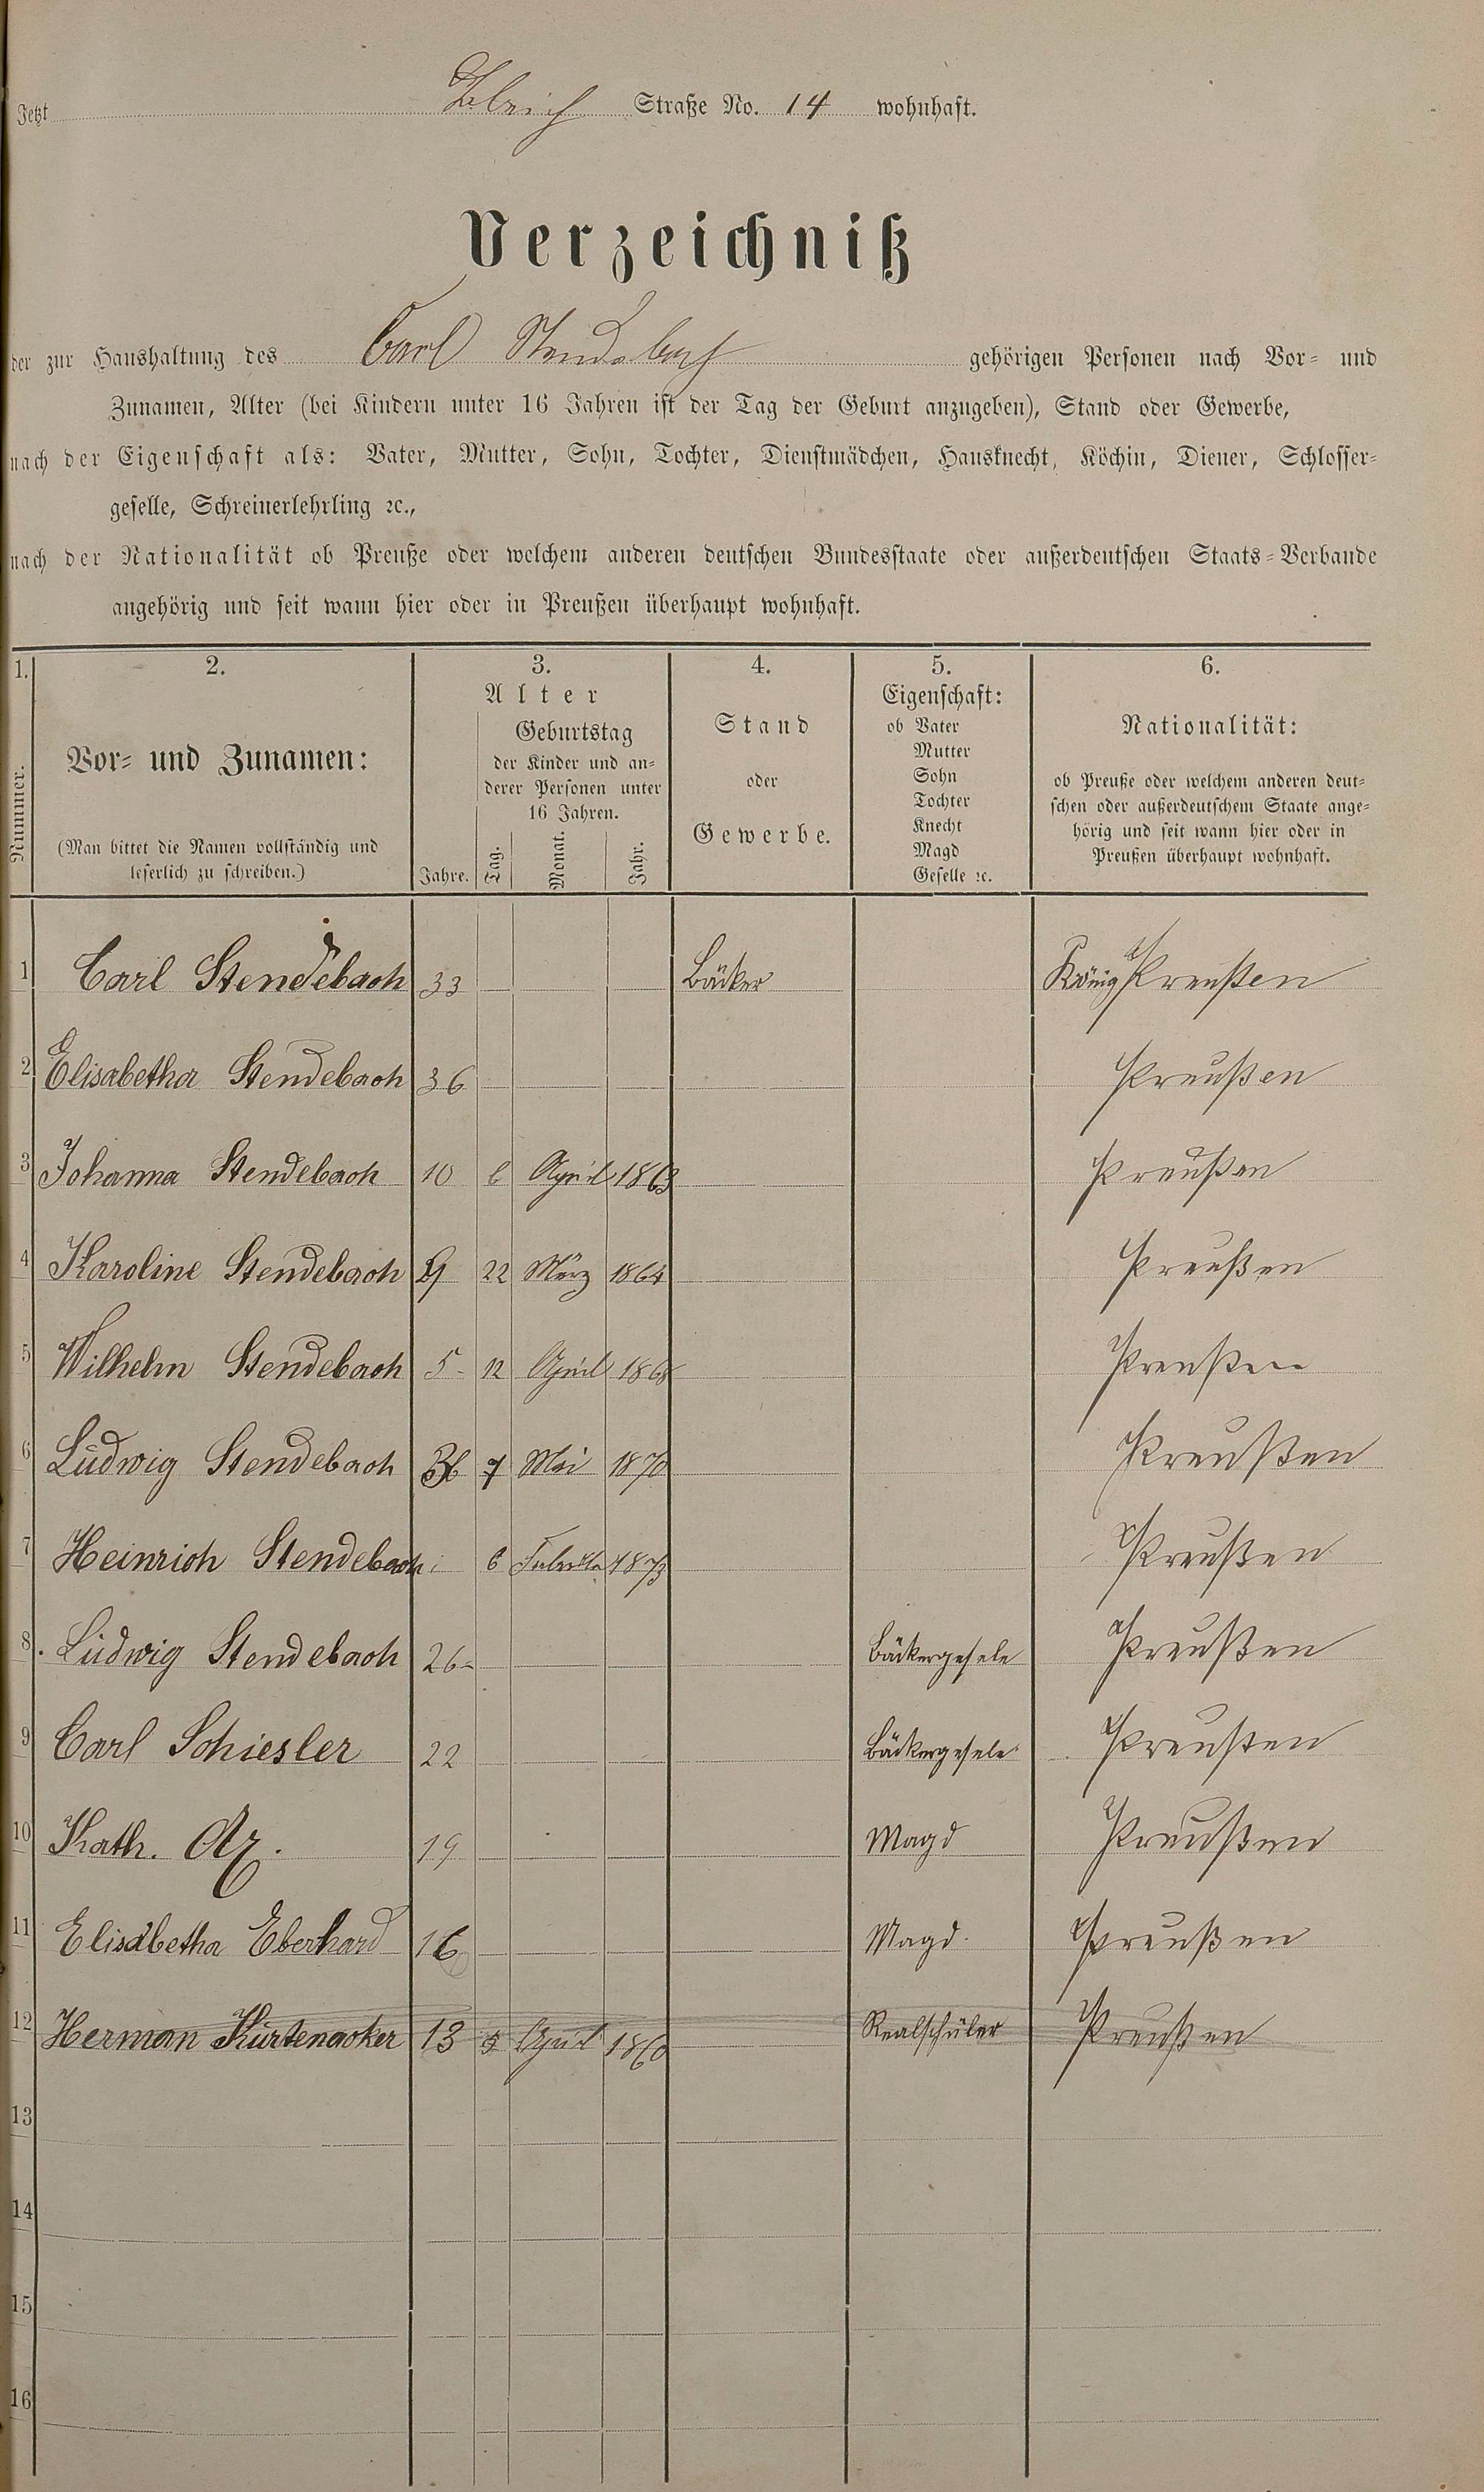 Jetzt Straße No. 14 wohnhaft.
Verzeichniß
der zur Haushaltung des Carl Stendebach gehörigen Personen nach Vor- und
Zunamen, Alter (bei Kindern unter 16 Jahren ist der Tag der Geburt anzugeben), Stand oder Gewerbe,
nach der Eigenschaft als: Vater, Mutter, Sohn, Tochter, Dienstmädchen, Hausknecht, Köchin, Diener, Schlosser-
geselle, Schreinerlehrling ꝛc.,
nach der Nationalität ob Preuße oder welchem anderen deutschen Bundesstaate oder außerdeutschen Staats-Verbande
angehörig und seit wann hier oder in Preußen überhaupt wohnhaft.
1. Nummer.
2.
Vor- und Zunamen:
(Man bittet die Namen vollständig und
leserlich zu schreiben.)
3.
Alter
Jahre.
Geburtstag
der Kinder und an-
derer Personen unter
16 Jahren.
Tag. Monat. Jahr.
4.
Stand
oder
Gewerbe.
5.
Eigenschaft:
ob Vater
Mutter
Sohn
Tochter
Knecht
Magd
Geselle ꝛc.
6.
Nationalität:
ob Preuße oder welchem anderen deut-
schen oder außerdeutschem Staate ange-
hörig und seit wann hier oder in
Preußen überhaupt wohnhaft.
1 Carl Stendebach 33 Bäcker König Preußen
2 Elisabetha Stendebach 36 Preußen
3 Johanna Stendebach 10 6 April 1863 Preußen
4 Karoline Stendebach 9 22 März 1864 Preußen
5 Wilhelm Stendebach 5 12 April 1868 Preußen
6 Ludwig Stendebach 7 Mai 1870 Preußen
7 Heinrich Stendebach 6 1873 Preußen
8 Ludwig Stendebach 26 Bäckergesele Preußen
9 Carl Schiesler 22 Bäckergesele Preußen
10 Kath. 19 Magd Preußen
11 Elisabetha Eberhard 16 Magd Preußen
12 Herman Kürtenacker 13 3 April 1860 Realschüler Preußen
13
14
15
16